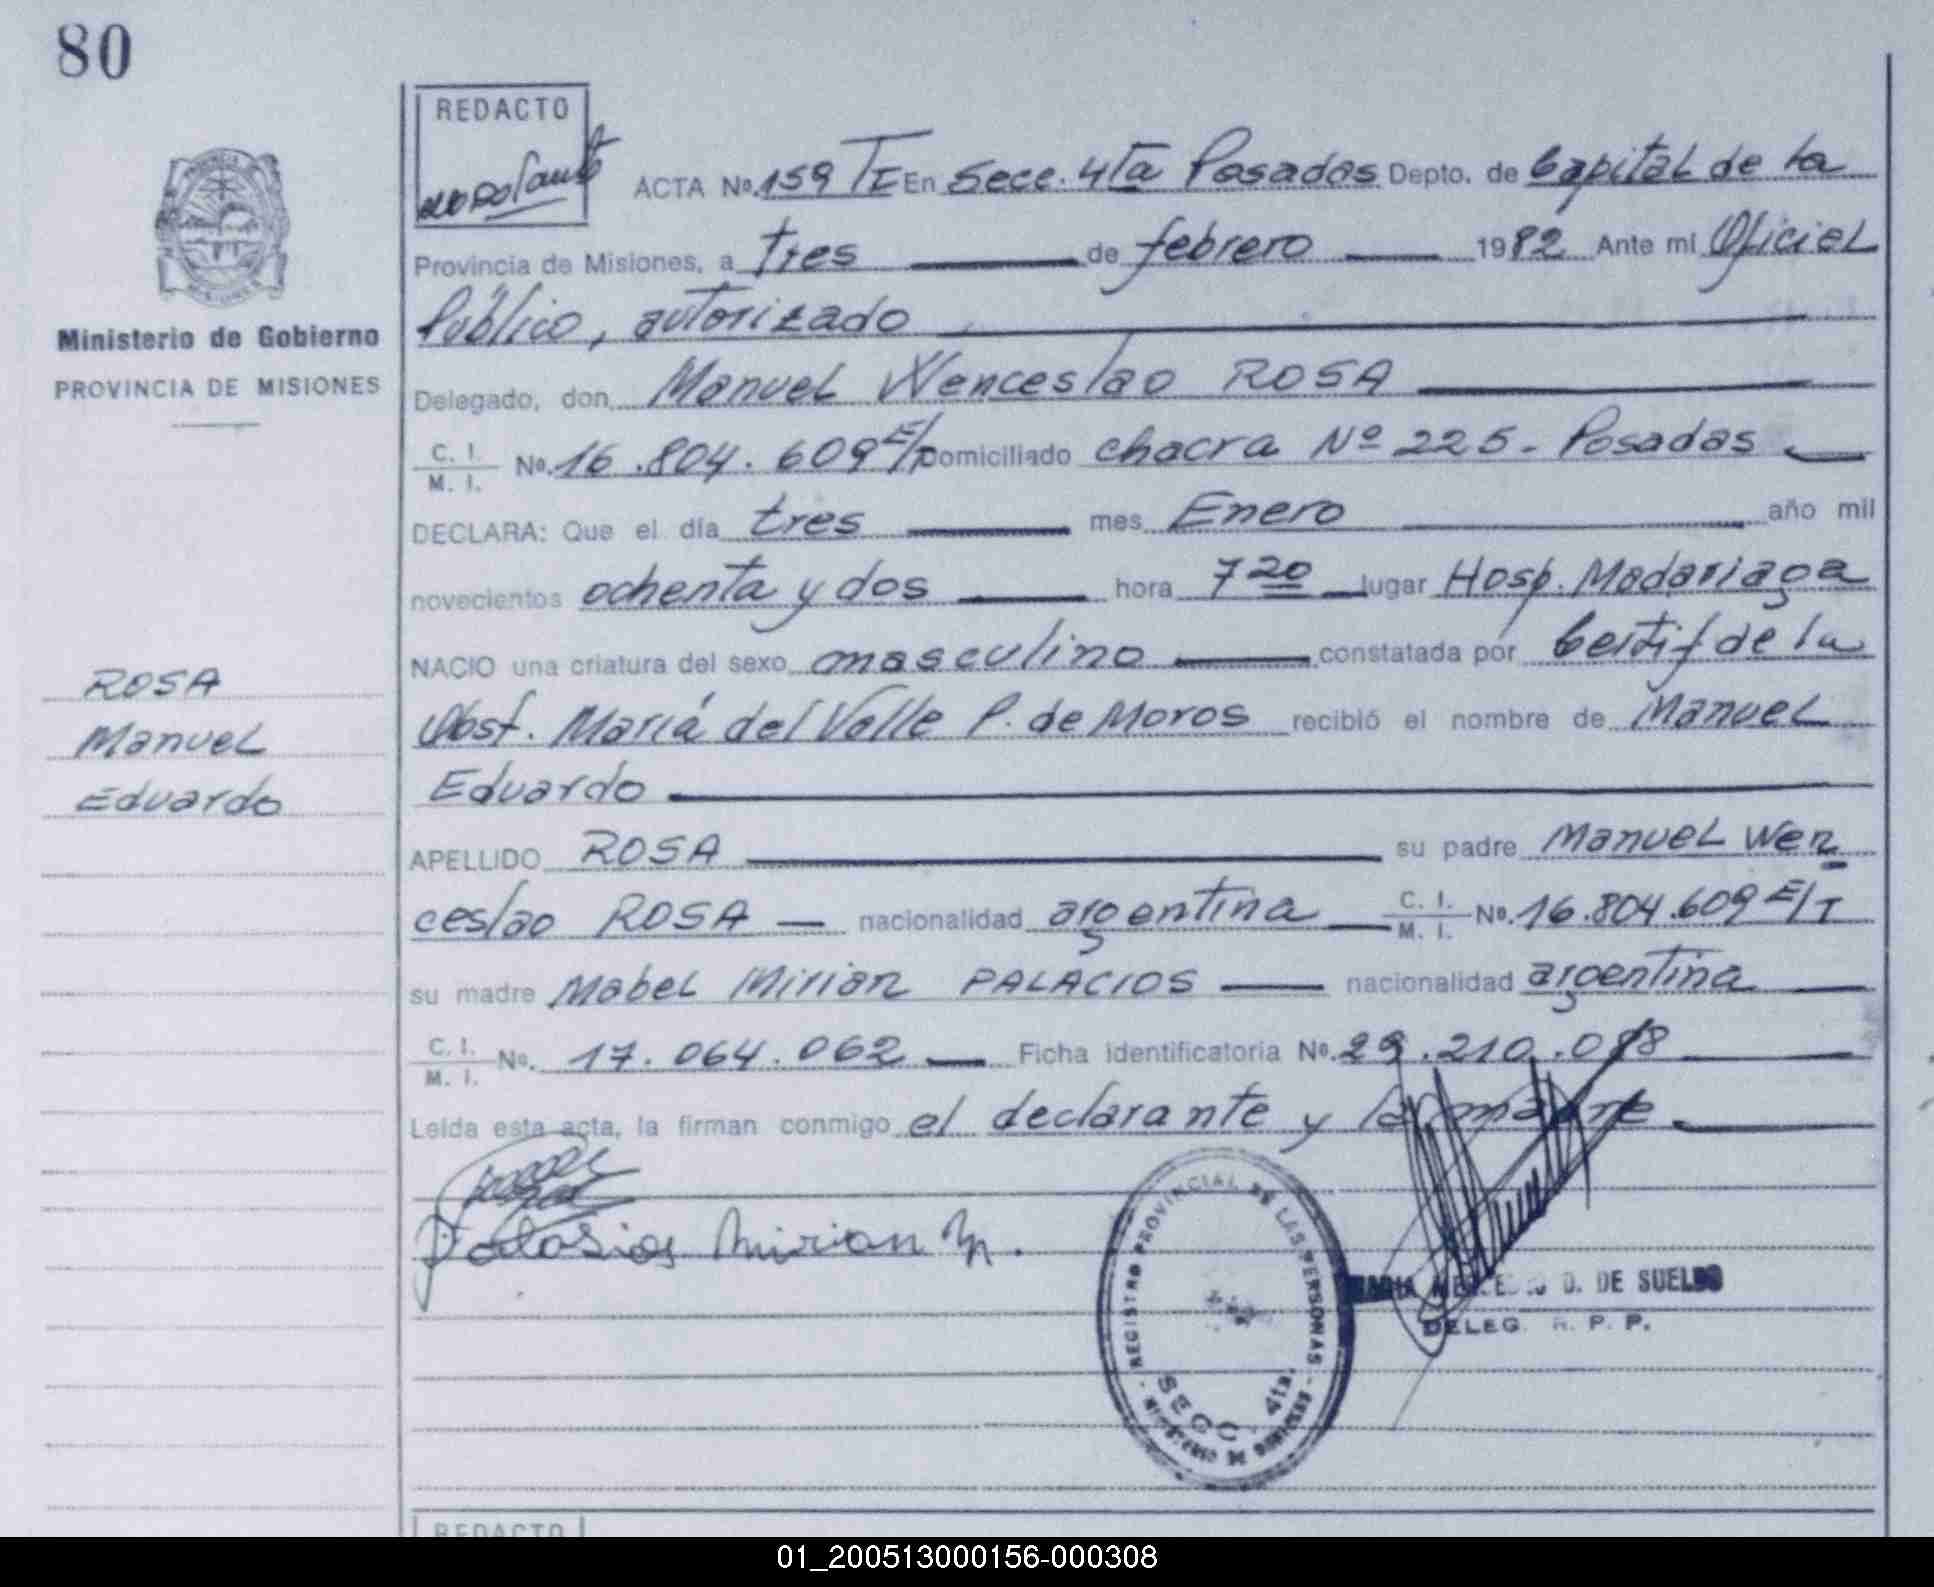 80
REDACTO
ACTA No. 159 TI En Secc. 4ta Posadas Depto. de Capital de la
Provincia de Misiones, a tres de febrero 1982 Ante mi Oficial
Público, autorizado
Ministerio de Gobierno
PROVINCIA DE MISIONES
Delegado, don Manuel Wenceslao ROSA
C. I.
M. I. No. 16.804.609 E/T Domiciliado chacra Nº 225 - Posadas
DECLARA: Que el día tres mes Enero año mil
novecientos ochenta y dos hora 7 20 lugar Hosp. Madariaga
NACIO una criatura del sexo masculino constatada por Certif de la
Obst. María del Valle P. de Moros recibió el nombre de Manuel
Eduardo
ROSA
Manuel
Eduardo
APELLIDO ROSA su padre Manuel Wen
ceslao ROSA nacionalidad argentina C. I. M. I. No. 16.804.609 E/T
su madre Mabel Mirian PALACIOS nacionalidad argentina
C. I.
M. I. No. 17.064.062 Ficha identificatoria No. 29.210.088
Leída esta acta, la firman conmigo el declarante y la madre
Palasios Mirian M.
REGISTRO PROVINCIAL DE LAS PERSONAS
SECC. 4ta.
D. DE SUELDO
DELEG. R. P. P.
REDACTO
01_200513000156-000308